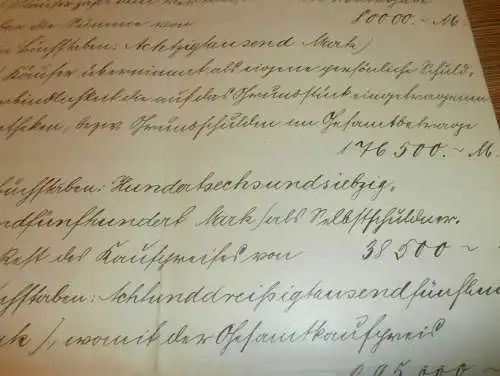 über die Summe von 80000.- M.
Buchstaben: Achtzigtausend Mark)
Käufer übernimmt als eigene persönliche Schuld-
verbindlichkeit die auf das Grundstück eingetragenen
Hypotheken, bezw. Grundschulden im Gesamtbetrage
176500.- M.
Buchstaben: Hundertsechsundsiebzig-
tausendfünfhundert Mark) als Selbstschuldner.
Rest des Kaufpreises von 38500 -
Buchstaben: Achtunddreißigtausendfünfhun
Mark), womit der Gesamtkaufpreis